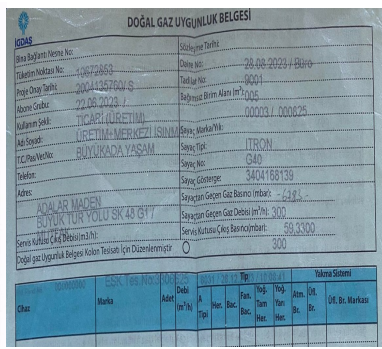 DOĞAL GAZ UYGUNLUK BELGESİ
İGDAŞ
Bina Bağlantı Nesne No:
Tüketim Noktası No: 10672653
Proje Onay Tarihi: 2004135760/ S
Abone Grubu: 22.06.2023 /
Kullanım Şekli: TİCARİ (ÜRETİM)
Adı Soyadı: ÜRETİM+MERKEZİ ISINM
T.C./Pas/VerNo: BÜYÜKADA YAŞAM
Telefon:
Adres:
ADALAR MADEN
BÜYÜK TUR YOLU SK 48 G1 /
Servis Kutusu Çıkış Debisi(m3/h):
Doğal gaz Uygunluk Belgesi Kolon Tesisatı İçin Düzenlenmiştir
Sözleşme Tarihi:
Daire No: 28.08.2023 / Büro
Tadilat No: 9001
Bağımsız Birim Alanı (m²): 005
00003 / 000825
Sayaç Marka/Yılı:
Sayaç Tipi: ITRON
Sayaç No: G40
Sayaç Gösterge: 3404168139
Sayaçtan Geçen Gaz Basıncı (mbar):
Sayaçtan Geçen Gaz Debisi (m³/h): 300
Servis Kutusu Çıkış Basıncı(mbar): 59,3300
300
Cihaz
Marka
Adet
Debi (m³/h)
Tip
A Tipi
Her.
Bac.
Fan. Bac.
Yoğ. Tam Her.
Yoğ. Yarı Her.
Yakma Sistemi
Atm. Br.
Üfl. Br.
Üfl. Br. Markası